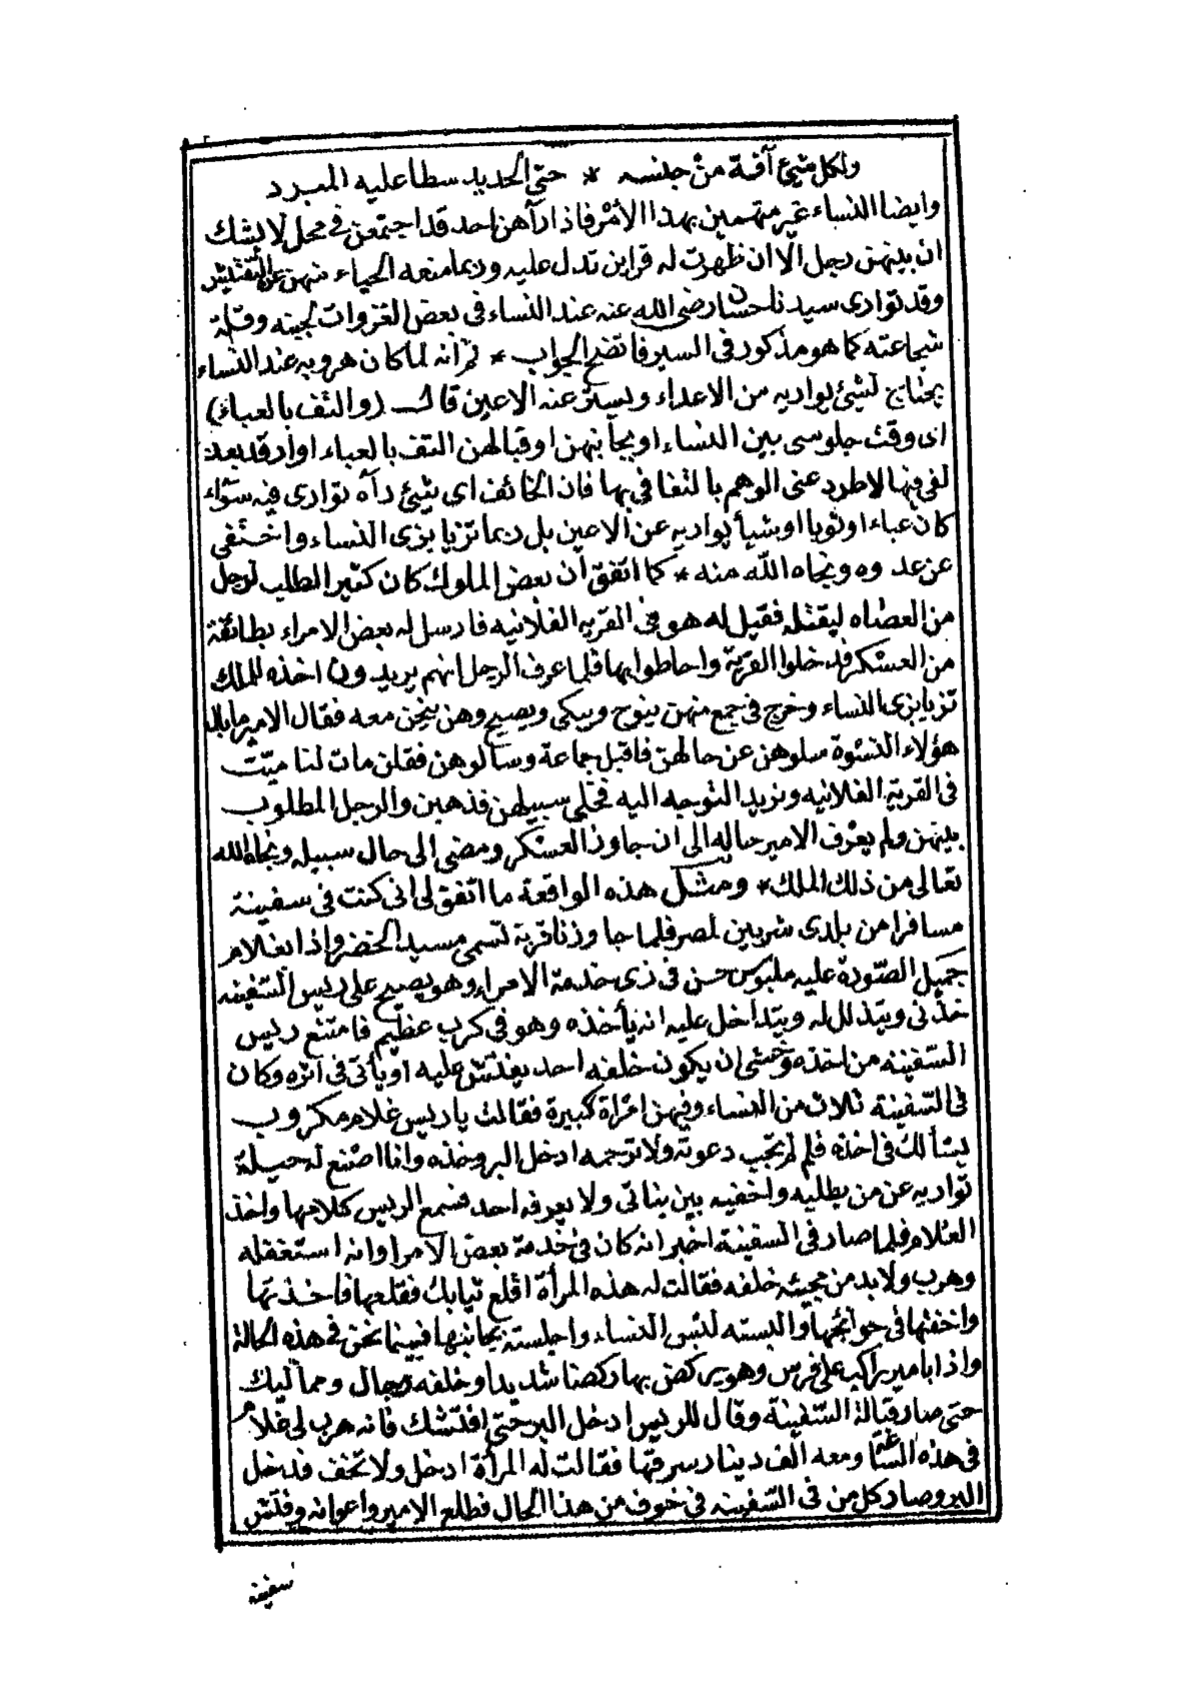 ولكل شيئ آفة من جنسه * حتى الحديد سطا عليه المبرد
وايضا النساء غير متهمين بهذا الأمر فاذا رآهن احد قد اجتمعن في محل لا يشك
ان بينهن رجل الا ان ظهرت له قراين تدل عليه وربما منعه الحياء منهن عن التفتيش
وقد توارى سيدنا حسان رضى الله عنه عند النساء في بعض الغزوات لجبنه وقلة
شجاعته كما هو مذكور في السير فاتضح الجواب * ثم انه لما كان هروبه عند النساء
يحتاج لشيئ يواريه من الاعداء ويستر عنه الاعين قال (والتف بالعباء)
اى وقت جلوسى بين النساء او بجانبهن او قبالهن التف بالعباء او ارقد بعد
لفى فيها لاطرد عنى الوهم بالتفافي بها فان الخائف اى شيئ رآه توارى فيه سواء
كان عباء او ثوبا او شيأ يواريه عن الاعين بل ربما تزيا بزى النساء واختفى
عن عدوه ونجاه الله منه * كما اتفق ان بعض الملوك كان كثير الطلب لرجل
من العصاه ليقتله فقيل له هو في القريه الفلانيه فارسل له بعض الامراء بطائفة
من العسكر فدخلوا القرية واحاطوا بها فلما عرف الرجل انهم يريدون اخذه للملك
تزيا بزى النساء وخرج في جمع منهن ينوح ويبكى ويصيح وهن ينحن معه فقال الامير ما بال
هؤلاء النسوة سلوهن عن حالهن فاقبل جماعة وسألوهن فقلن مات لنا ميت
في القرية الفلانيه ونريد التوجه اليه فخلى سبيلهن فذهبن والرجل المطلوب
بينهن ولم يعرف الامير حاله الى ان جاوز العسكر ومضى الى حال سبيله ونجاه الله
تعالى من ذلك الملك * ومثل هذه الواقعة ما اتفق لى انى كنت في سفينة
مسافرا من بلدى شربين لمصر فلما جاوزنا قرية تسمى مسيد الخضر واذا بغلام
جميل الصورة عليه ملبوس حسن في زى خدمة الامراء وهو يصيح على ريس السفينه
خذنى ويتذلل له ويتداخل عليه انه يأخذه وهو في كرب عظيم فامتنع ريس
السفينه من اخذه وخشى ان يكون خلفه احد يفتش عليه او يأتى في اثره وكان
في السفينة ثلاث من النساء وفيهن امرأة كبيرة فقالت يا ريس غلام مكروب
يسألك في اخذه فلم لم تجب دعوته ولا ترحمه ادخل البر وخذه وانا اصنع له حيلة
تواريه عن من يطلبه واخفيه بين بناتى ولا يعرفه احد فسمع الريس كلامها واخذ
الغلام فلما صار في السفينة اخبر انه كان في خدمة بعض الأمرا وانه استغفله
وهرب ولا بد من مجيئه خلفه فقالت له هذه المرأة اقلع ثيابك فقلعها فاخذتها
واخفتها في حوائجها والبسته لبس النساء واجلسته بجانبها فبينما نحن في هذه الحالة
واذا بامير راكب على فرس وهو يركض بها ركضا شديدا وخلفه رجال ومماليك
حتى صار قبالة السفينة وقال للريس ادخل البر حتى افتشك فانه هرب لى غلام
في هذه الساعة ومعه الف دينار سرقها فقالت له المرأة ادخل ولا تخف فدخل
البر وصار كل من في السفينه في خوف من هذا الحال فطلع الامير واعوانه وفتش
سفينه